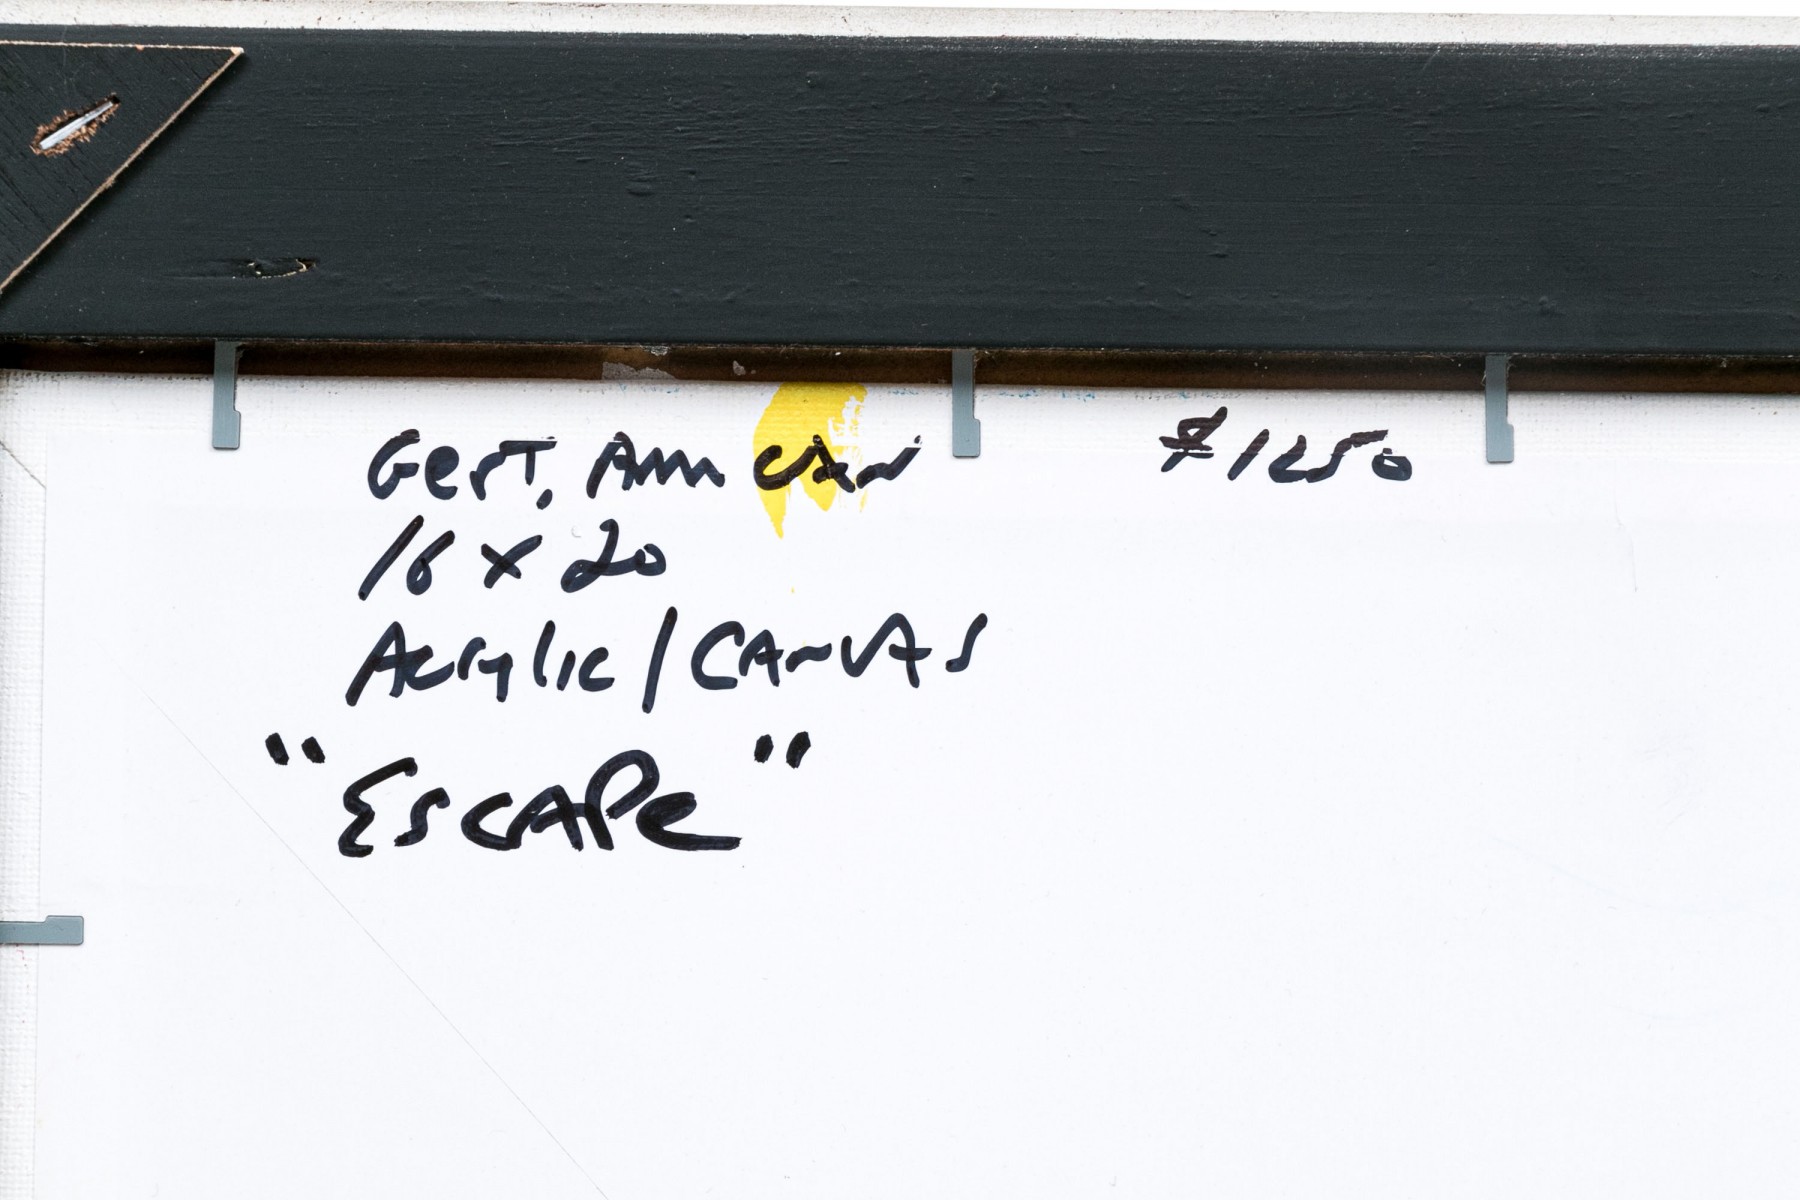 Gert, Ann Can $1250
16 x 20
Acrylic / Canvas
"Escape"